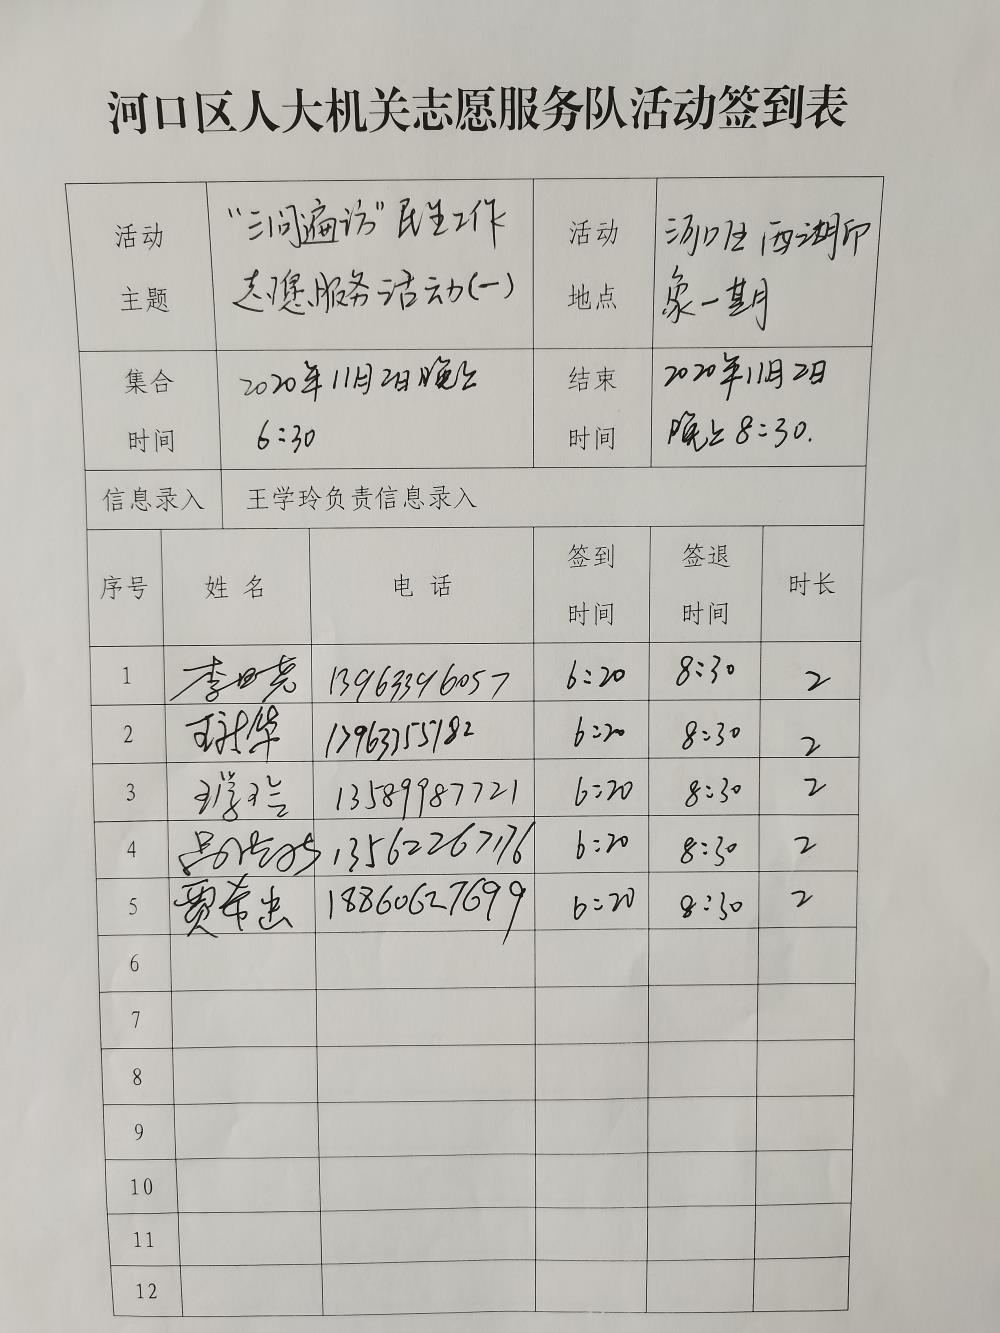 河口区人大机关志愿服务队活动签到表
活动主题 “三问遍访”民生工作 活动地点 河口区西湖印
志愿服务活动(一) 象一期
集合时间 2020年11月2日晚上 结束时间 2020年11月2日
6:30 晚上8:30.
信息录入 王学玲负责信息录入
序号 姓名 电话 签到时间 签退时间 时长
1 13963396057 6:20 8:30 2
2 13963355182 6:20 8:30 2
3 王学玲 13589987721 6:20 8:30 2
4 13562267176 6:20 8:30 2
5 贾希忠 18860627699 6:20 8:30 2
6
7
8
9
10
11
12